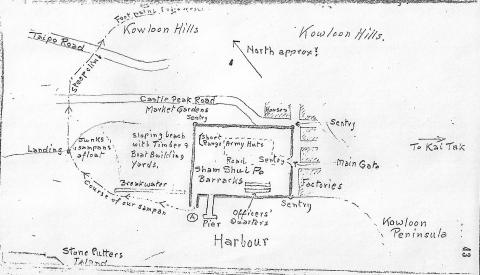 Foot path
Kowloon Hills
Kowloon Hills.
Taipo Road
North approx:
Steep climb
Castle Peak Road
Market Gardens
Houses
Sentry
Sentry
Junks &
sampans
afloat
Sloping beach
with Timber &
Boat Building
Yards.
Short
Range
Army Huts
Landing
To Kai Tak
Road
Sentry
Main Gate
Sham Shui Po
Barracks
Factories
Breakwater
Course of our sampan
Sentry
A
Pier
Officers'
Quarters
Kowloon
Peninsula
Harbour
Stone Cutters
Island
43